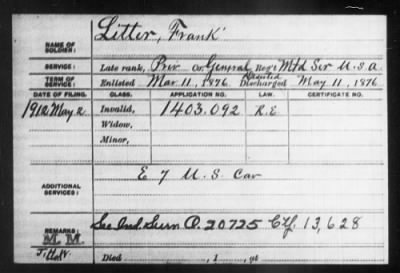 Litter, Frank
NAME OF SOLDIER:
SERVICE: Late rank, Priv Co. General Reg't Mtd Ser U.S.A.
TERM OF SERVICE: Enlisted Mar. 11, 1876 Deserted Discharged May 11, 1876
DATE OF FILING. CLASS. APPLICATION NO. LAW. CERTIFICATE NO.
1912 May 2 Invalid, 1403.092 R.E
Widow,
Minor,
E 7 U.S. Cav
ADDITIONAL SERVICES:
REMARKS: See Ind. Surv. O. 20725 Ctf. 13,628
M. M.
Died , 1 , at